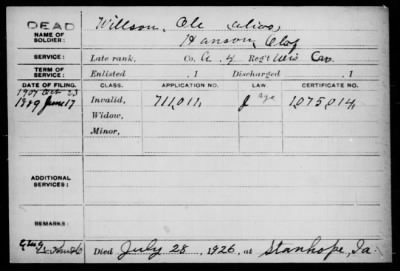 DEAD
Willson, Ole alias,
NAME OF SOLDIER:
Hanson, Olof
SERVICE:
Late rank, Co. A. 4 Reg't Wis Cav.
TERM OF SERVICE:
Enlisted , 1 Discharged , 1
DATE OF FILING. CLASS. APPLICATION NO. LAW CERTIFICATE NO.
1907 Oct 23
1889 June 17 Invalid, 711,011, age 1,075,014,
Widow,
Minor,
ADDITIONAL SERVICES:
REMARKS:
Died July 28, 1926, at Stanhope, Ia.